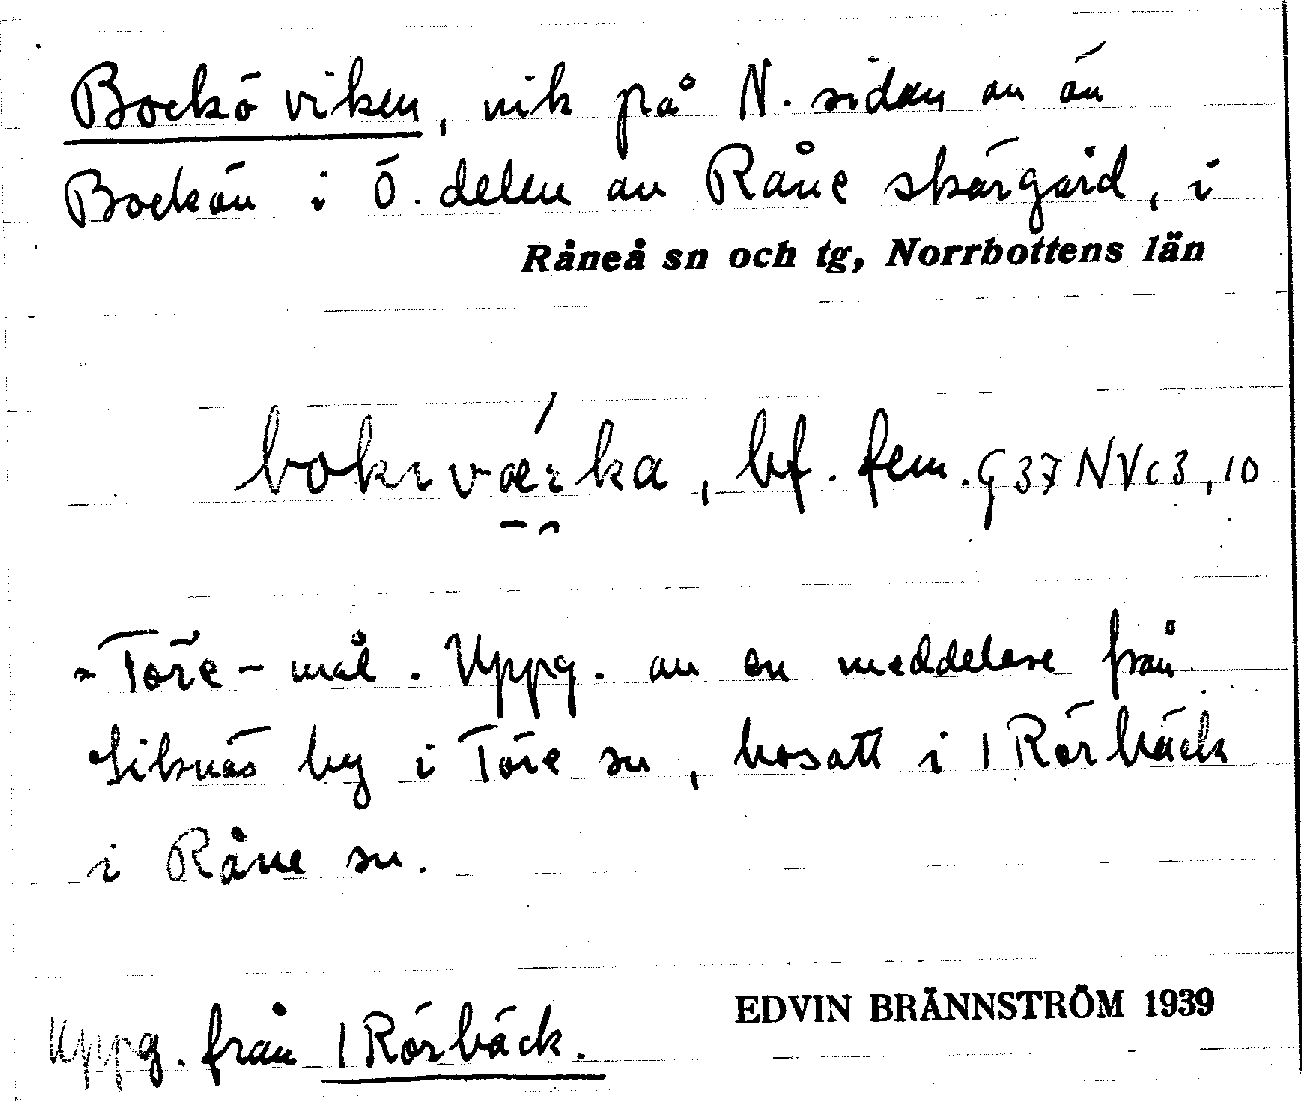 Bockö viken, vik på N. sidan av ön
Bockön i Ö. delen av Råne skärgård, i
Råneå sn och tg, Norrbottens län
bf. fem. G 37 NV c 3, 10
Töre-mål. Uppg. av en meddelare från
Siknäs by i Töre sn, bosatt i 1 Rörbäck
i Råne sn.
EDVIN BRÄNNSTRÖM 1939
Uppg. från 1 Rörbäck.